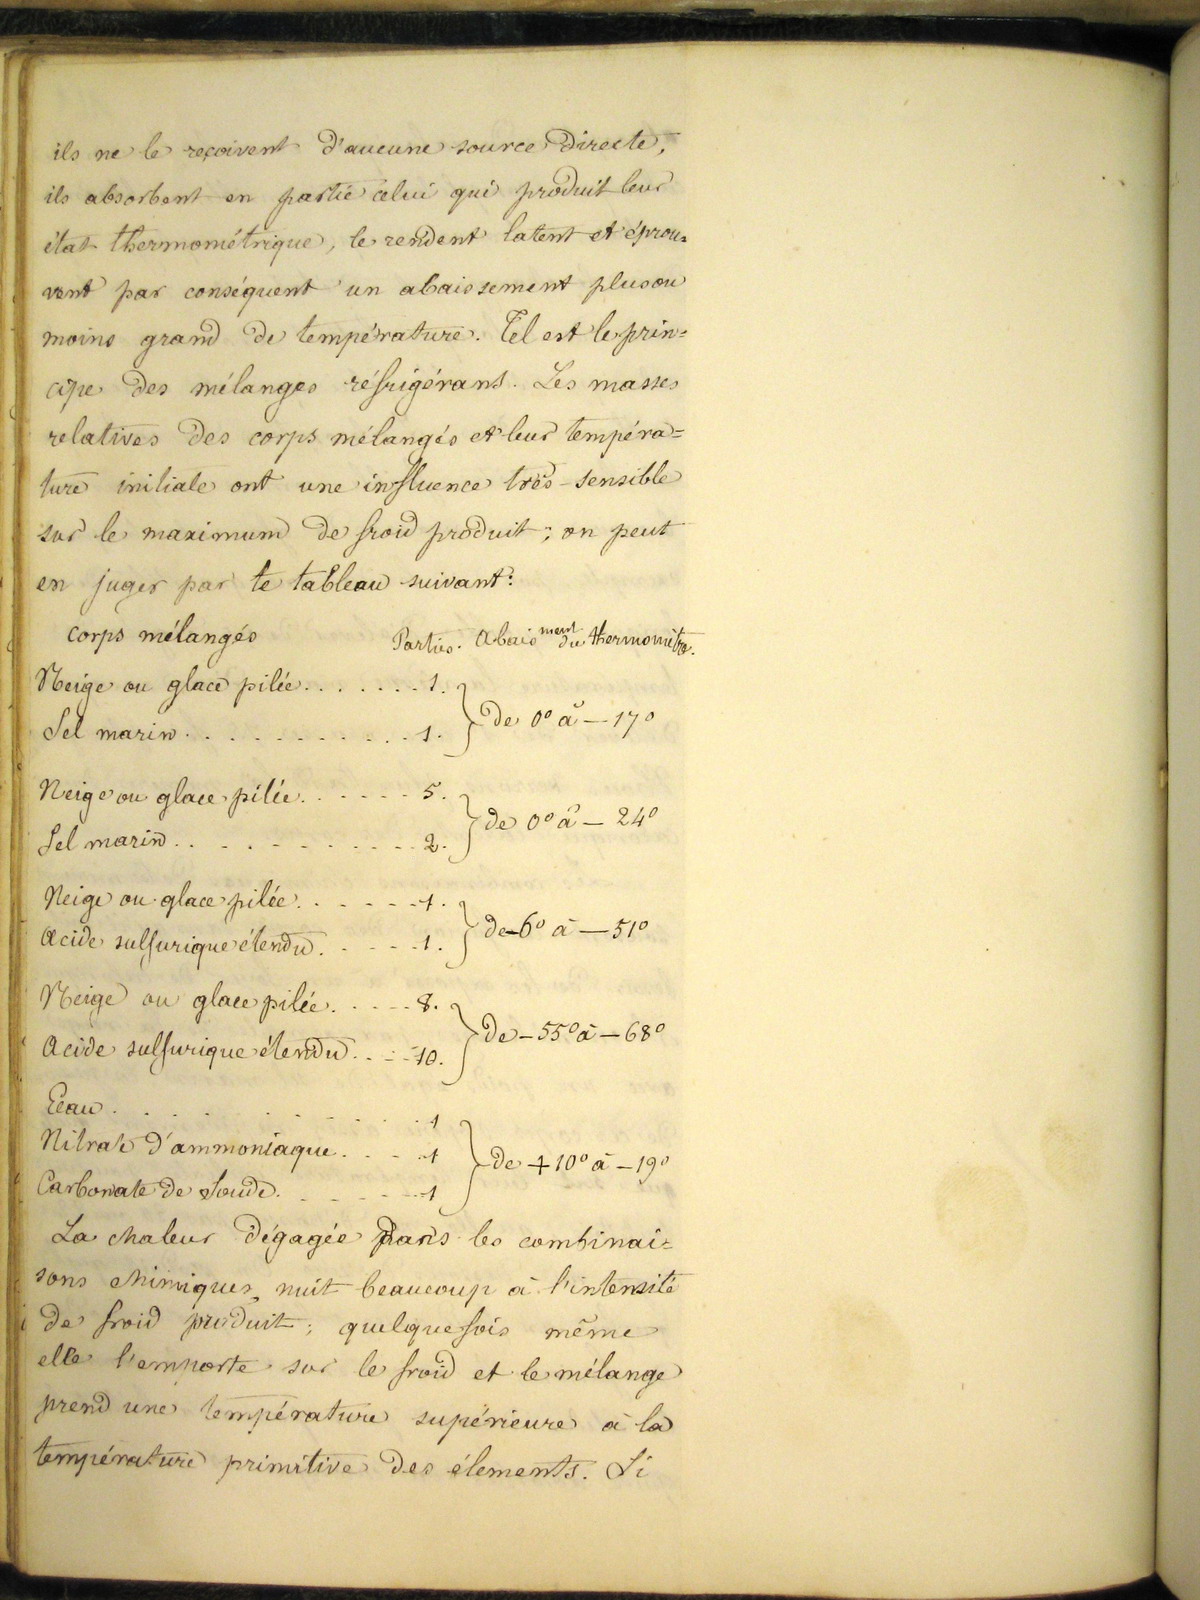 ils ne le reçoivent d'aucune source directe,
ils absorbent en partie celui qui produit leur
état thermométrique, le rendent latent et éprou=
vent par conséquent un abaissement plus ou
moins grand de température. Tel est le prin=
cipe des mélanges réfrigérans. Les masses
relatives des corps mélangés et leur tempéra=
ture initiale ont une influence très-sensible
sur le maximum de froid produit; on peut
en juger par le tableau suivant:
corps mélangés Parties. Abaissment du thermomètre.
Neige ou glace pilée. . . . . . . 1.
Sel marin . . . . . . . . . . . 1. } de 0° à — 17°
Neige ou glace pilée. . . . . . 5.
Sel marin . . . . . . . . . . . 2. } de 0° à — 24°
Neige ou glace pilée. . . . . . 1.
Acide sulfurique étendu. . . . . 1. } de -6° à — 51°
Neige ou glace pilée. . . . . 8.
Acide sulfurique étendu. . . . 10. } de — 55° à — 68°
Eau . . . . . . . . . . . 1
Nitrate d'ammoniaque. . . . 1 } de + 10° à — 19°
Carbonate de Soude. . . . . . . 1
La chaleur dégagée dans les combinai=
sons chimiques, nuit beaucoup à l'intensité
de froid produit; quelquefois même
elle l'emporte sur le froid et le mélange
prend une température supérieure à la
température primitive des élements. Si